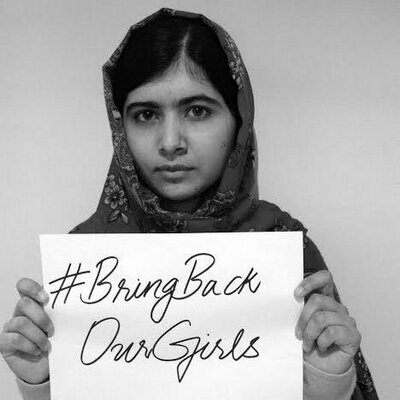 #BringBack
OurGirls